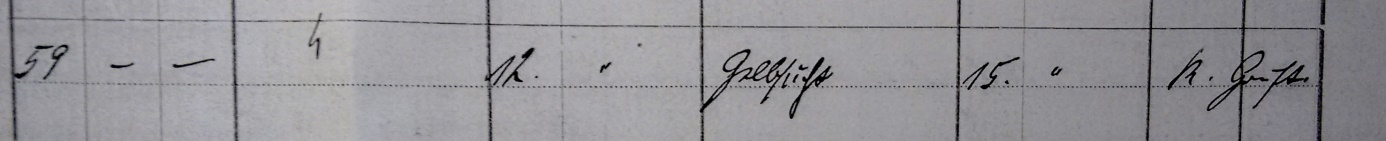 59 – – 12. " Gelbsucht 15. " K. Gruft.